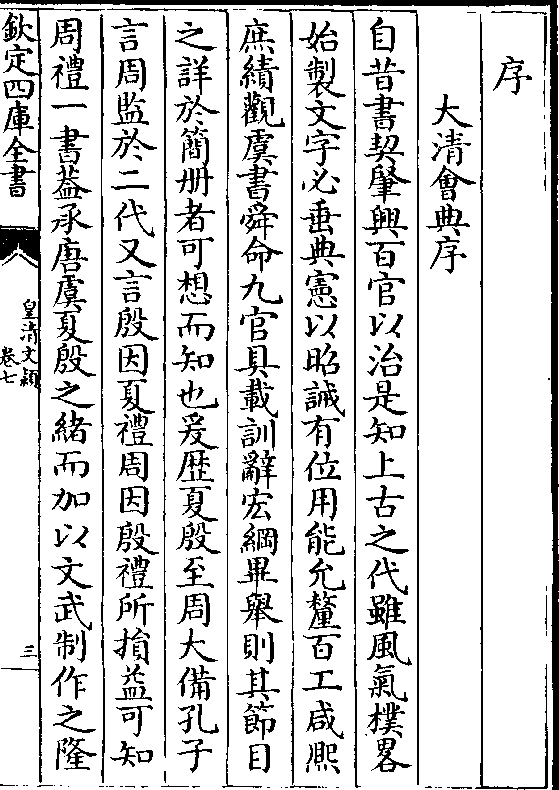 序
大清會典序
自昔書契肇興百官以治是知上古之代雖風氣樸畧
始製文字必垂典憲以昭誡有位用能允釐百工咸熈
庶績觀虞書舜命九官具載訓辭宏綱畢舉則其節目
之詳於簡册者可想而知也爰歴夏殷至周大備孔子
言周監於二代又言殷因夏禮周因殷禮所損益可知
周禮一書葢承唐虞夏殷之緒而加以文武制作之隆
欽定四庫全書
皇清文穎
卷七
三